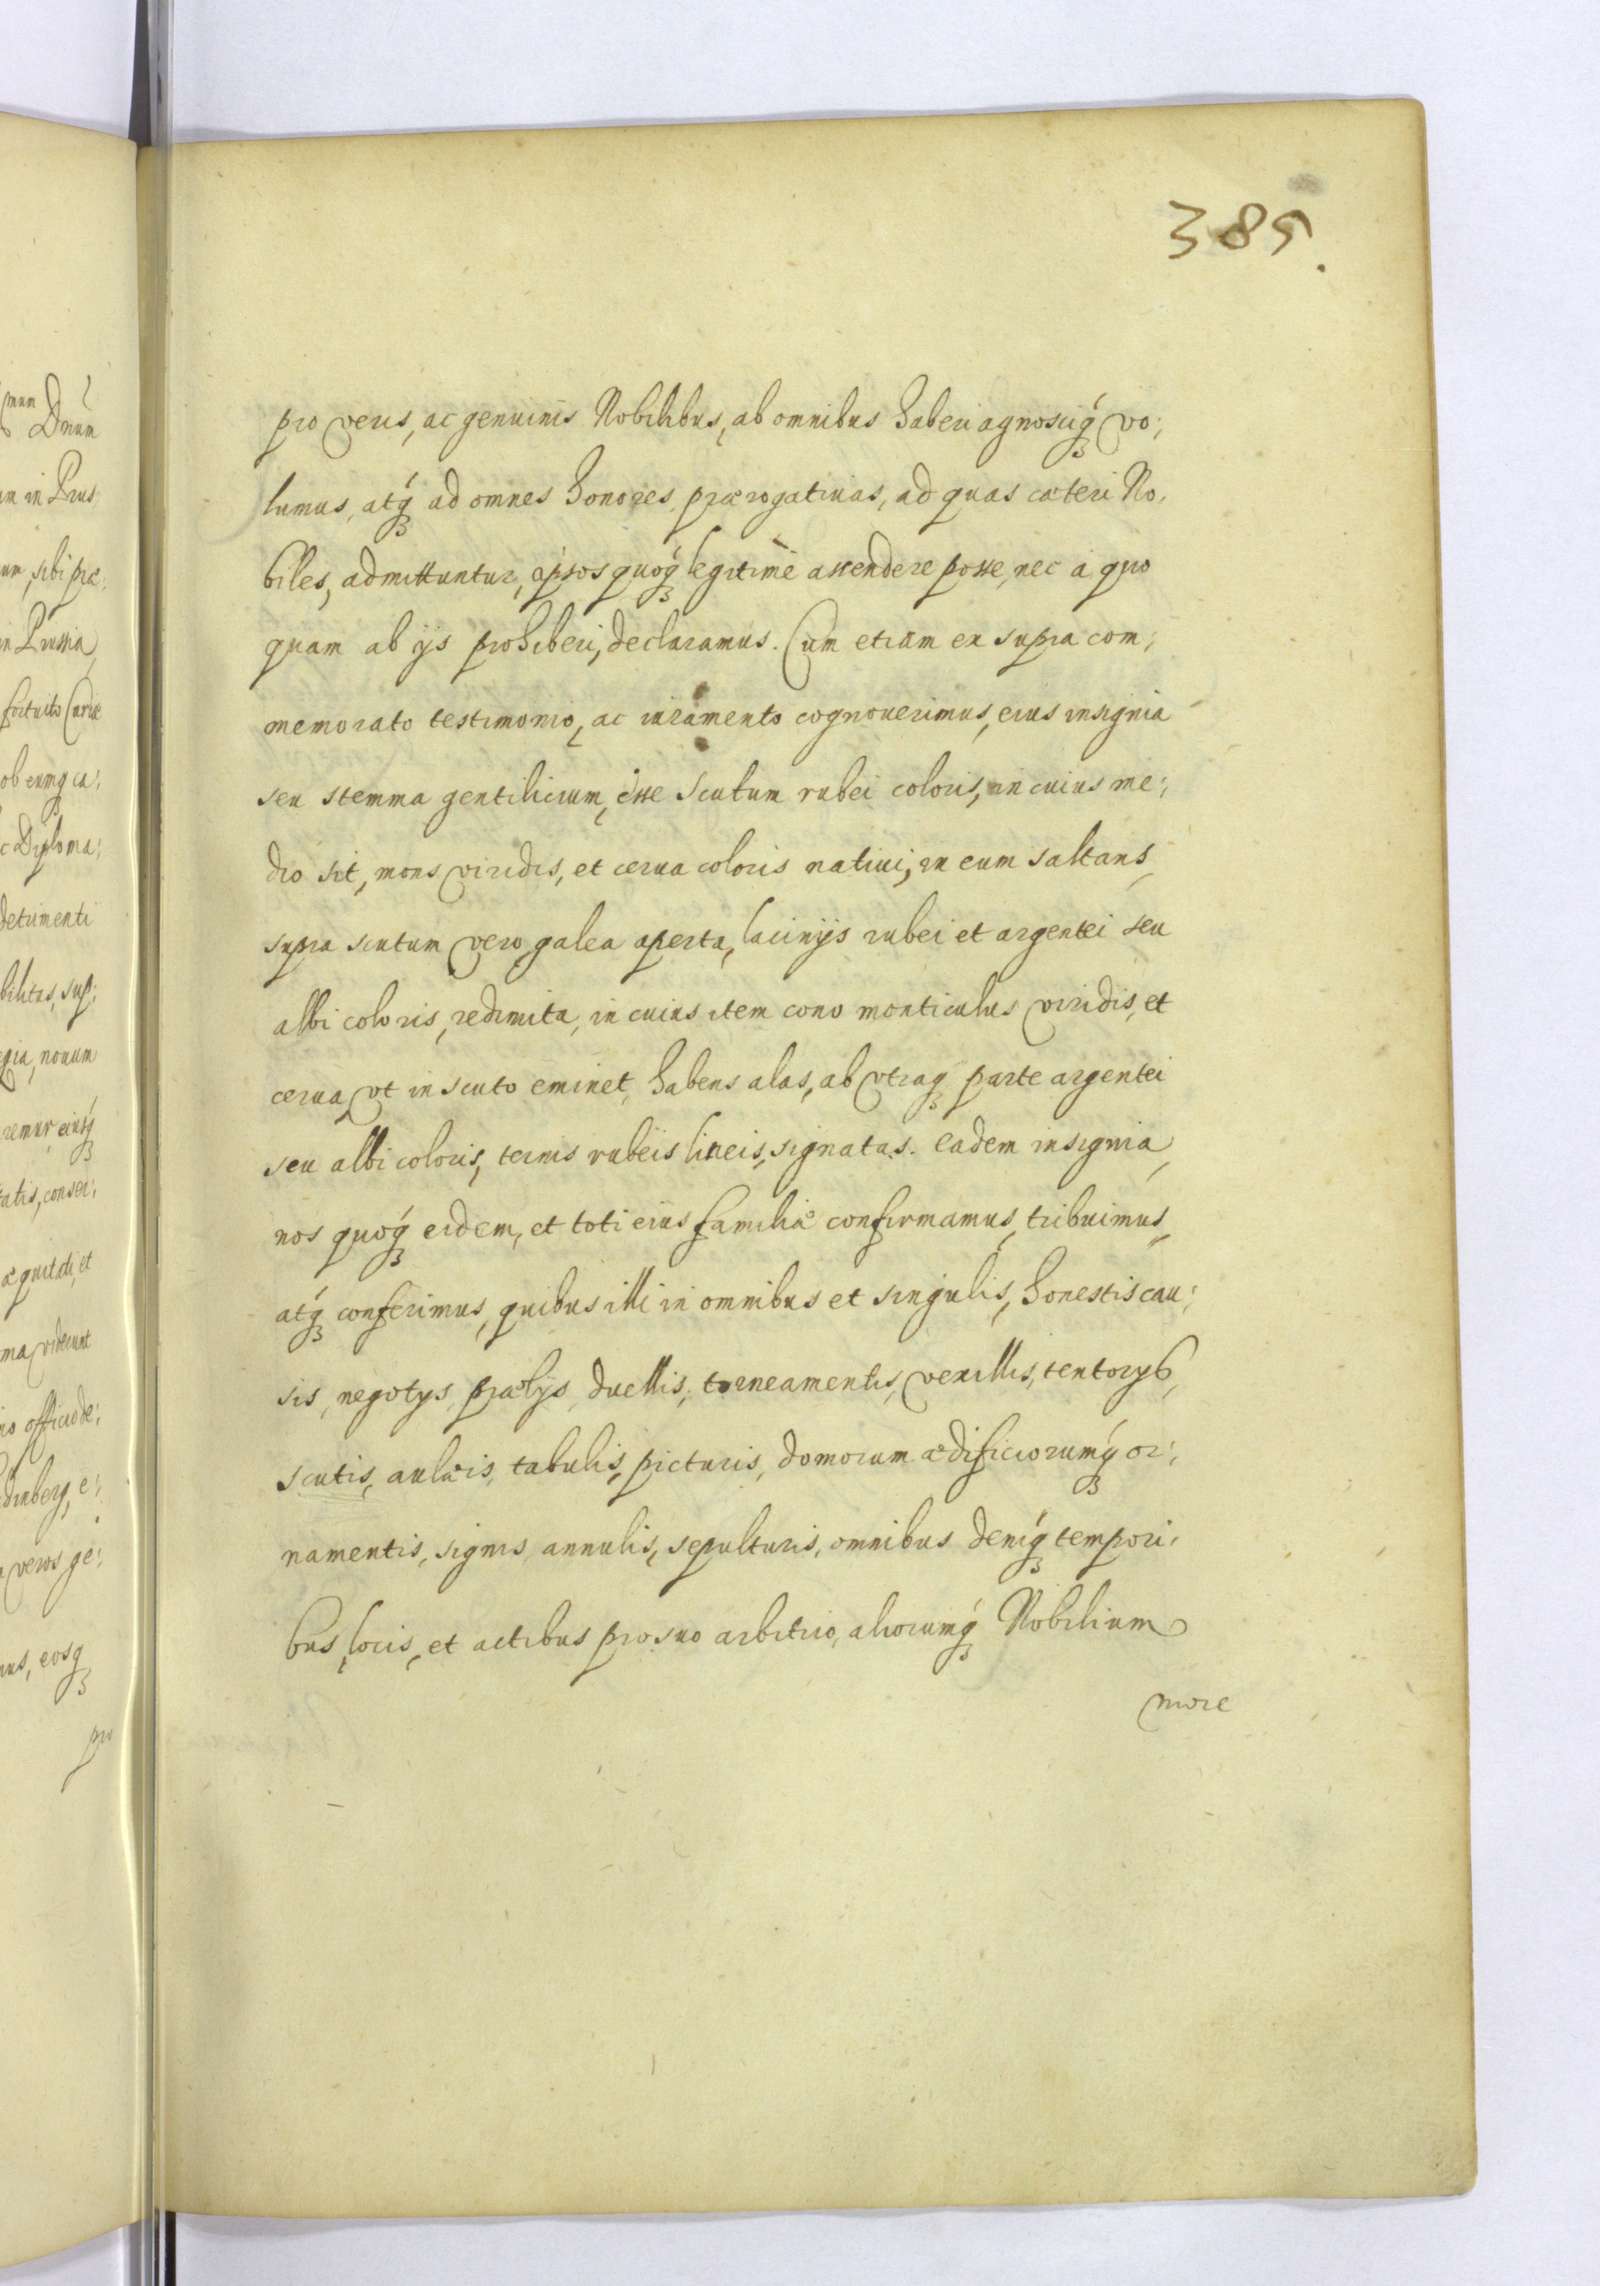 385.
pro veris, ac genuinis Nobilibus, ab omnibus haberi agnosciq́ꝫ vo;
lumus, atq́ꝫ ad omnes honores, prærogatiuas, ad quas cæteri No,
biles, admittuntur, ipsos quoq́ꝫ legitimè assendere posse, nec à quo
quam ab ijs prohiberi, declaramus. Cum etiam ex supra com;
memorato testimonio, ac iuramento cognouerimus, eius insignia
seu stemma gentilicium, esse scutum rubei coloris, in cuius me;
dio sit, mons viridis, et cerua coloris natiui, in eum saltans,
supra scutum vero galea aperta, lacinijs rubei et argentei seu
albi coloris, redimita, in cuius item cono monticulus viridis, et
cerua, vt in scuto eminet, habens alas, ab vtraqꝫ parte argentei
seu albi coloris, ternis rubeis lineis, signatas. eadem insignia,
nos quoq́ꝫ eidem, et toti eius familiæ confirmamus, tribuimus,
atq́ꝫ conferimus, quibus illi in omnibus et singulis, honestis cau;
sis, negotys, prælijs, duellis, torneamentis, vexillis, tentorys,
scutis, aulæis, tabulis, picturis, domorum ædificiorumq́ꝫ or;
namentis, signis, annulis, sepulturis, omnibus deniq́ꝫ tempori,
bus, locis, et actibus pro suo arbitrio, aliorumq́ꝫ Nobilium
more
mum
Dnum
um in Prus;
um, sibi præ,
in Prussia
fortuito
ob eumqꝫ ca;
c Diploma;
detrimenti
bilitas, sup;
egia, nouum
remur eiusq́ꝫ
tatis, conser,
æquitati, et
ma viderunt
io officio de;
dinberg, e;
veros ge;
us, eosqꝫ
pro